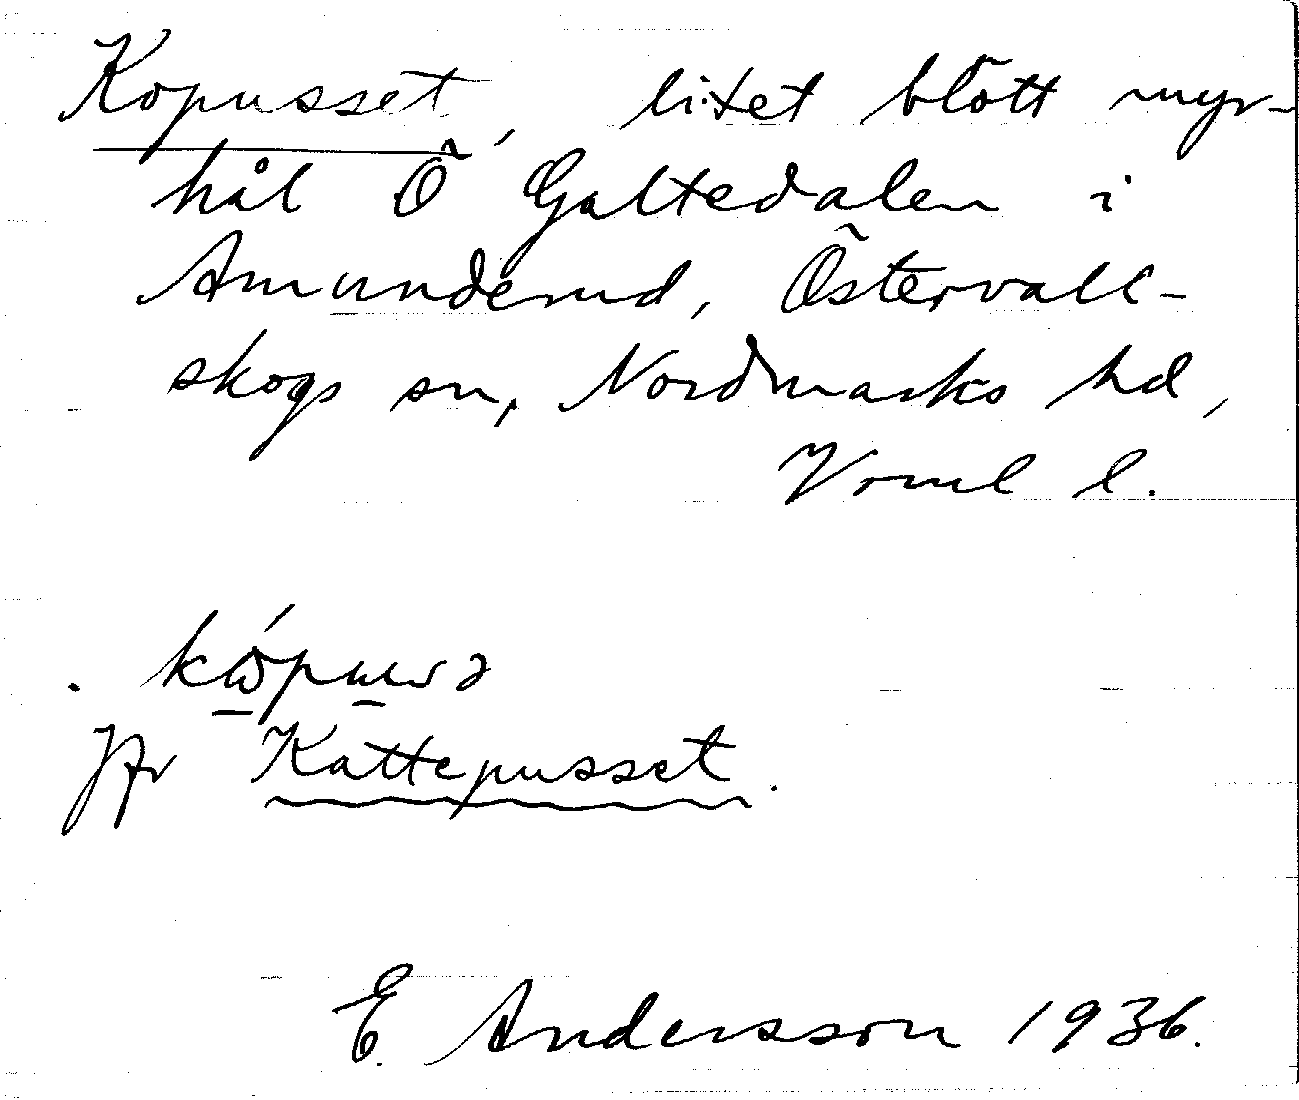 Kopusset, litet blött myr-
hål Ö Galtedalen i
Amunderud, Östervall-
skogs sn, Nordmarks hd,
Vrml l.
Jfr Kattepusset.
E. Andersson 1936.